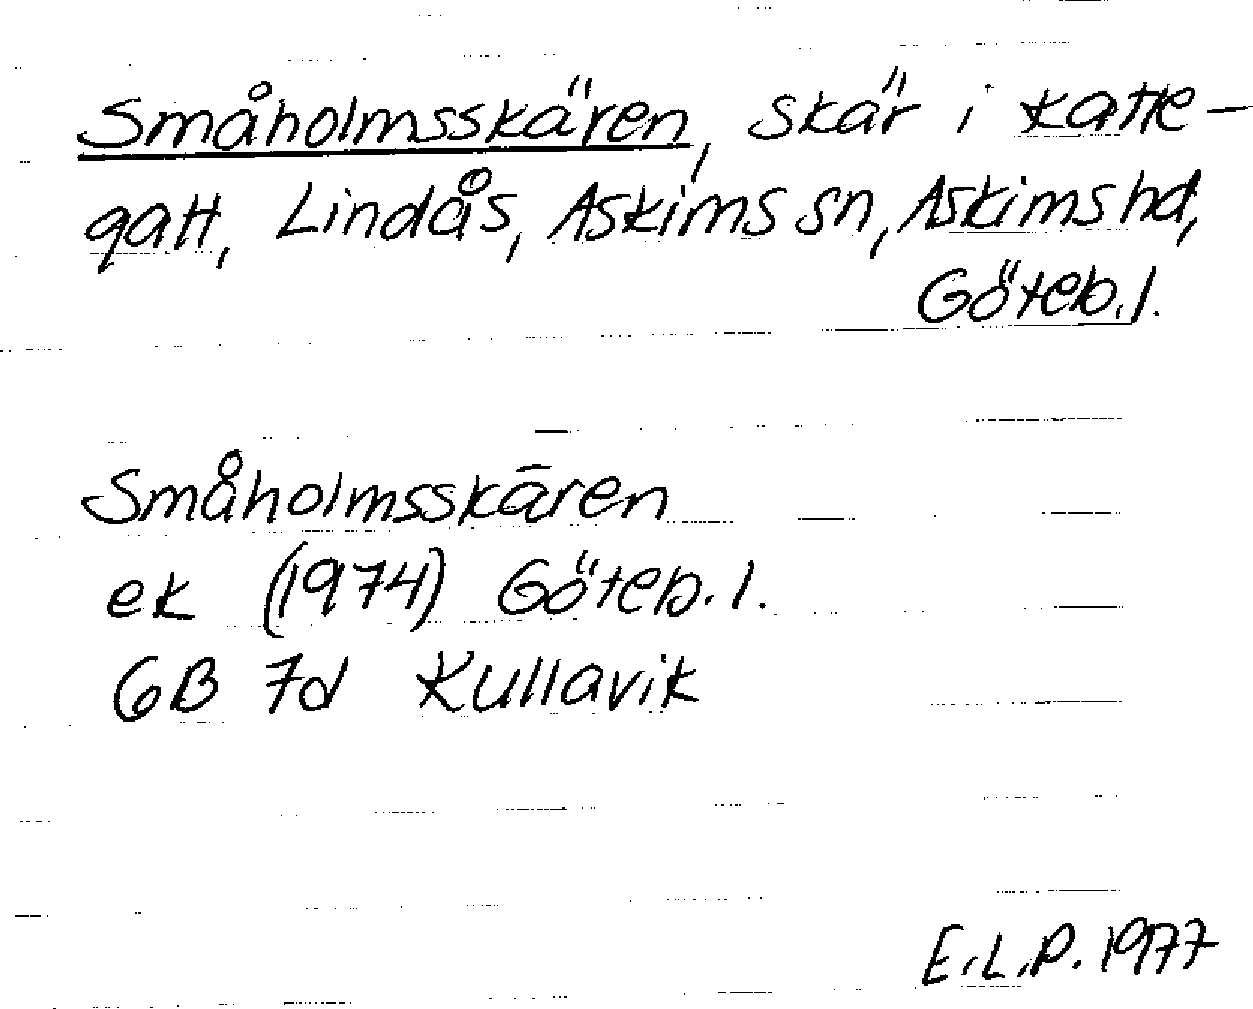 Småholmsskären, skär i Katte-
gatt, Lindås, Askims sn, Askims hd,
Göteb. l.
Småholmsskären
ek (1974) Göteb. l.
6B 7d Kullavik
E.L.P. 1977